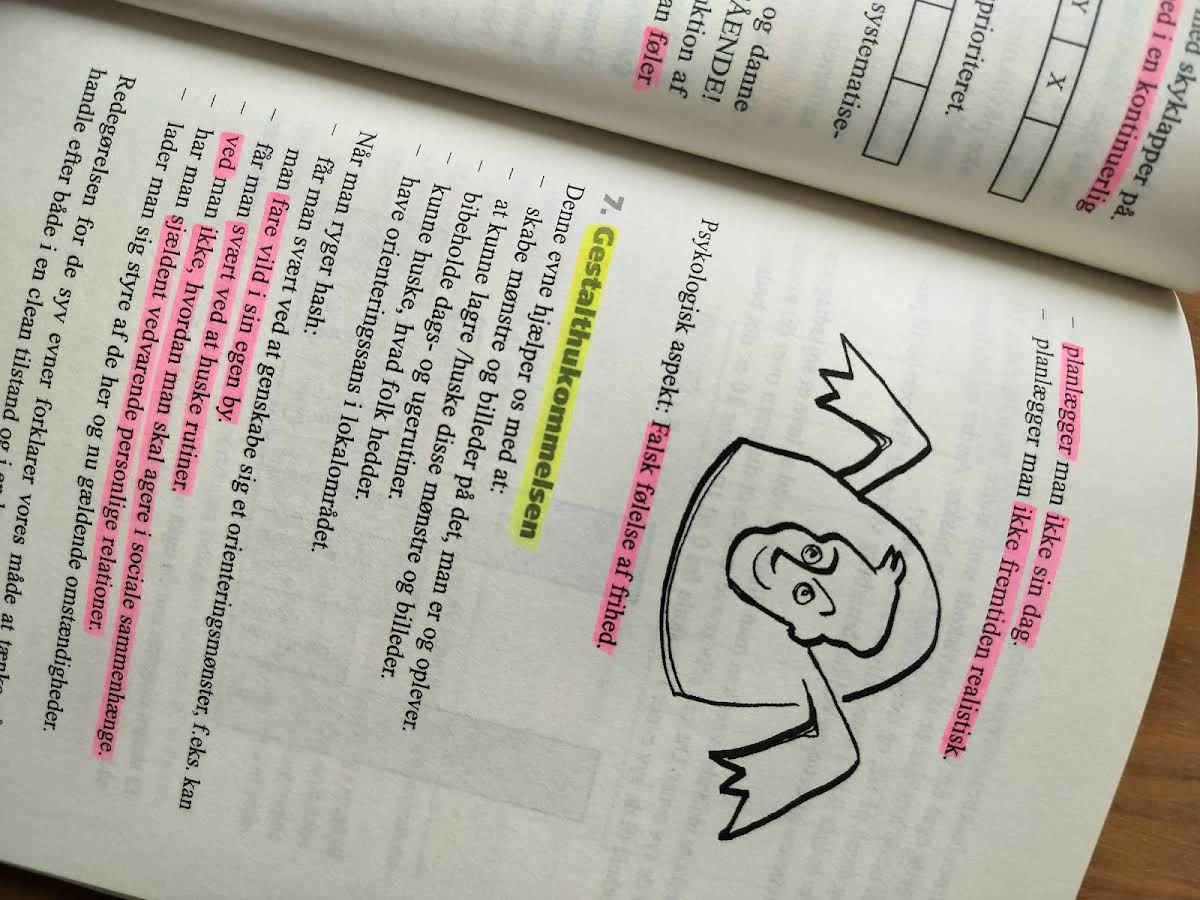 ned skyklapper på.
ed i en kontinuerlig
Y X
prioriteret.
systematise-
og danne
ÅENDE!
ktion af
an føler
– planlægger man ikke sin dag.
– planlægger man ikke fremtiden realistisk.
Psykologisk aspekt: Falsk følelse af frihed.
7. Gestalthukommelsen
Denne evne hjælper os med at:
– skabe mønstre og billeder på det, man er og oplever.
– at kunne lagre /huske disse mønstre og billeder.
– bibeholde dags- og ugerutiner.
– kunne huske, hvad folk hedder.
– have orienteringssans i lokalområdet.
Når man ryger hash:
– får man svært ved at genskabe sig et orienteringsmønster, f.eks. kan
man fare vild i sin egen by.
– får man svært ved at huske rutiner.
– ved man ikke, hvordan man skal agere i sociale sammenhænge.
– har man sjældent vedvarende personlige relationer.
– lader man sig styre af de her og nu gældende omstændigheder.
Redegørelsen for de syv evner forklarer vores måde at tænke
handle efter både i en clean tilstand og i en